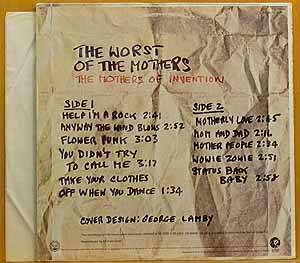 THE WORST
OF THE MOTHERS
THE MOTHERS OF INVENTION
SIDE 1
HELP I'M A ROCK 2:41
ANYWAY THE WIND BLOWS 2:52
FLOWER PUNK 3:03
YOU DIDN'T TRY
TO CALL ME 3:17
TAKE YOUR CLOTHES
OFF WHEN YOU DANCE 1:34
SIDE 2
MOTHERLY LOVE 2:45
MOM AND DAD 2:16
MOTHER PEOPLE 2:31
WOWIE ZOWIE 2:51
STATUS BACK
BABY 2:52
COVER DESIGN: GEORGE LAMBY
MGM